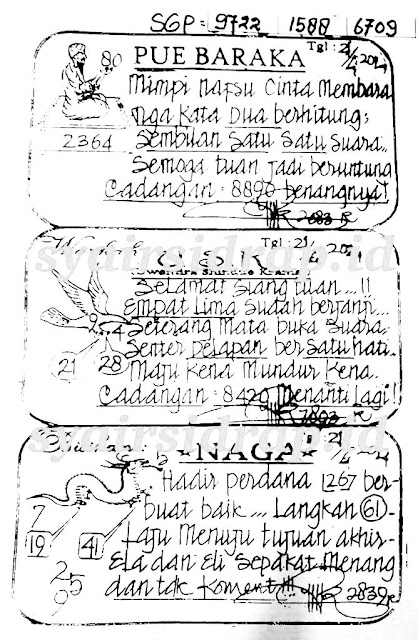 SGP = 9722 1588 6709
PUE BARAKA
Tgl : 21/4 2014
80
Mimpi Nafsu Cinta Membara
Nga Kata Dua berhitung;
Sembilan Satu Satu Suara..
2364
Semoga tuan Jadi beruntung
Cadangan : 8890 benangnya!
2683
Tgl : 21/4
Selamat Siang tuan ...!!
Empat Lima Sudah berjanji...
Seterang Mata buka Suara.
Senter pelapan ber Satu hati.
21 28
Maju Kena Mundur Kena.
Cadangan : 8420 Menanti Lagi!
7893
syairsidrap.id
NAGA
Hadir perdana 1267 ber-
buat baik ... Langkah 61 -
7
Laju Menuju tujuan akhir-
19 41
Ela dan Eli Sepakat Menang
25
dan tdk Koment!!!
2839
9
syairsidrap.id